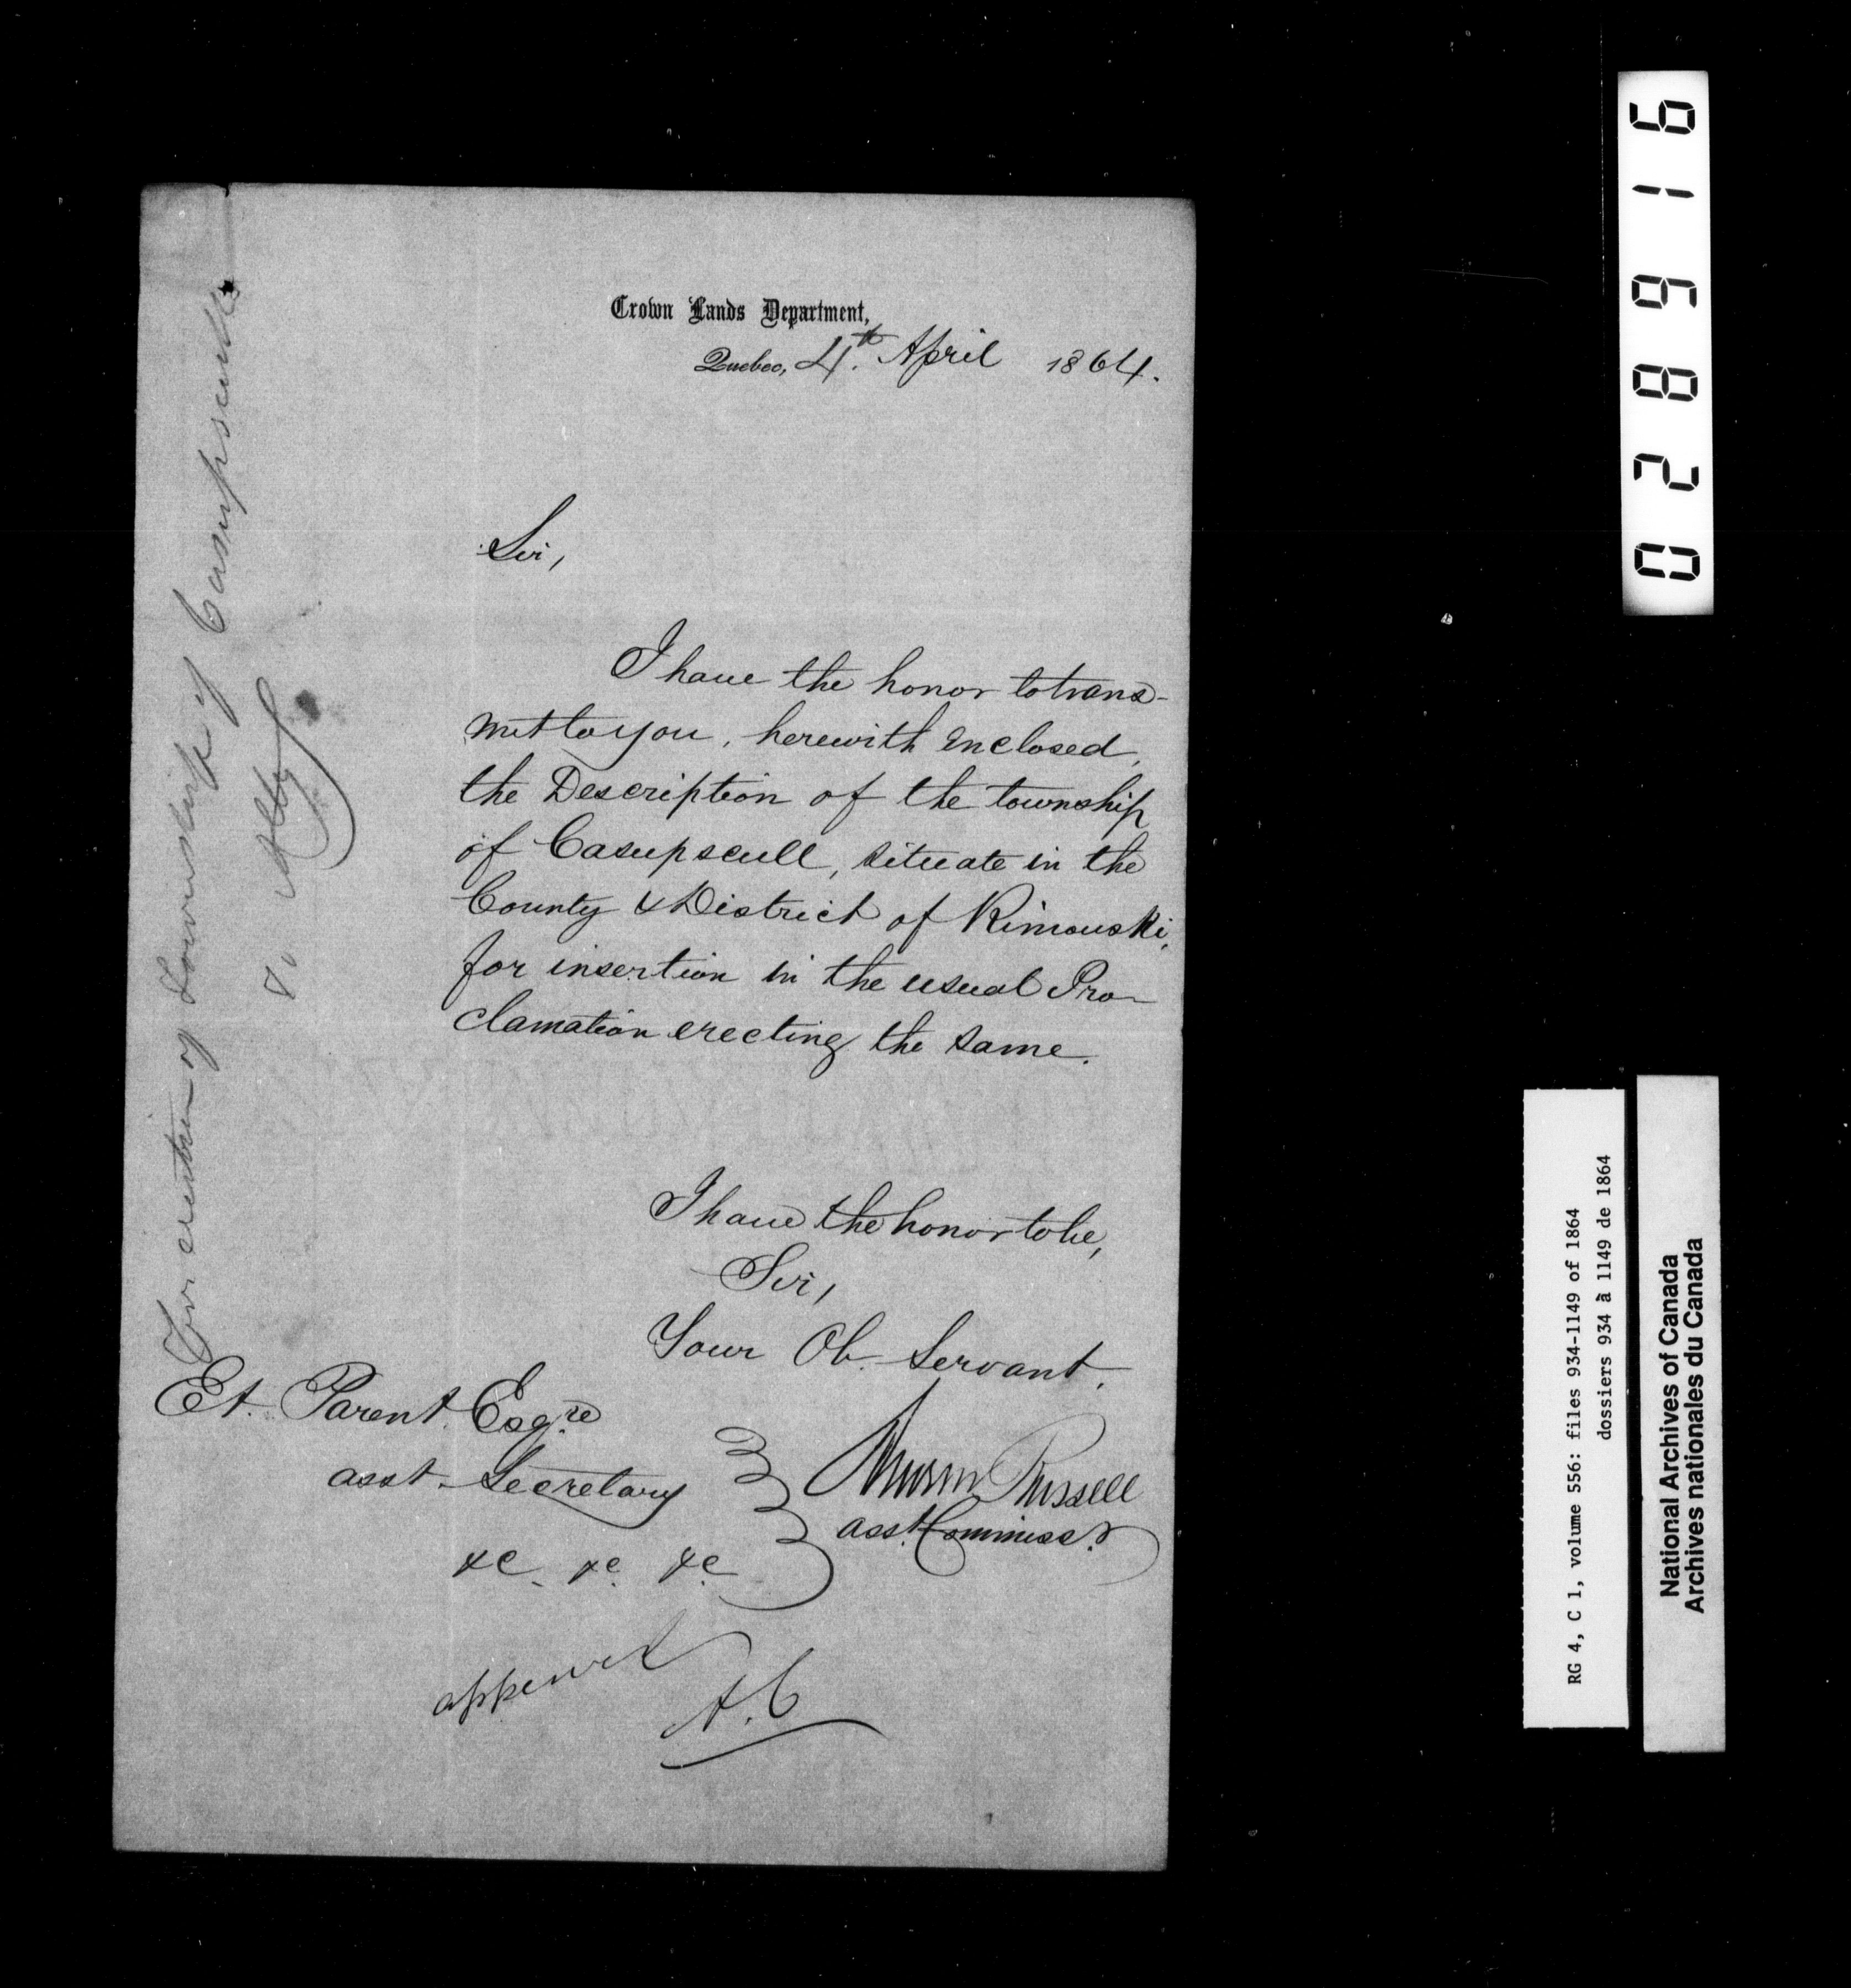 Crown Lands Department,
Quebec, 4th. April 1864.
Sir,
I have the honor to trans-
mit to you, herewith enclosed,
the Description of the township
of Casupscull, situate in the
County & District of Rimouski,
for insertion in the usual Pro-
clamation erecting the same.
I have the honor to be,
Sir,
Your Ob. Servant.
Et. Parent Esqre
asst. Secretary
&c. &c. &c.
Russell
asst. Commissr.
A. C
For erection of Township of Causupscull
To Atty
028916
RG 4, C 1, volume 556: files 934-1149 of 1864
dossiers 934 à 1149 de 1864
National Archives of Canada
Archives nationales du Canada